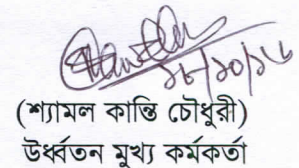 ১৮/১০/১৬
(শ্যামল কান্তি চৌধুরী)
উর্ধ্বতন মুখ্য কর্মকর্তা